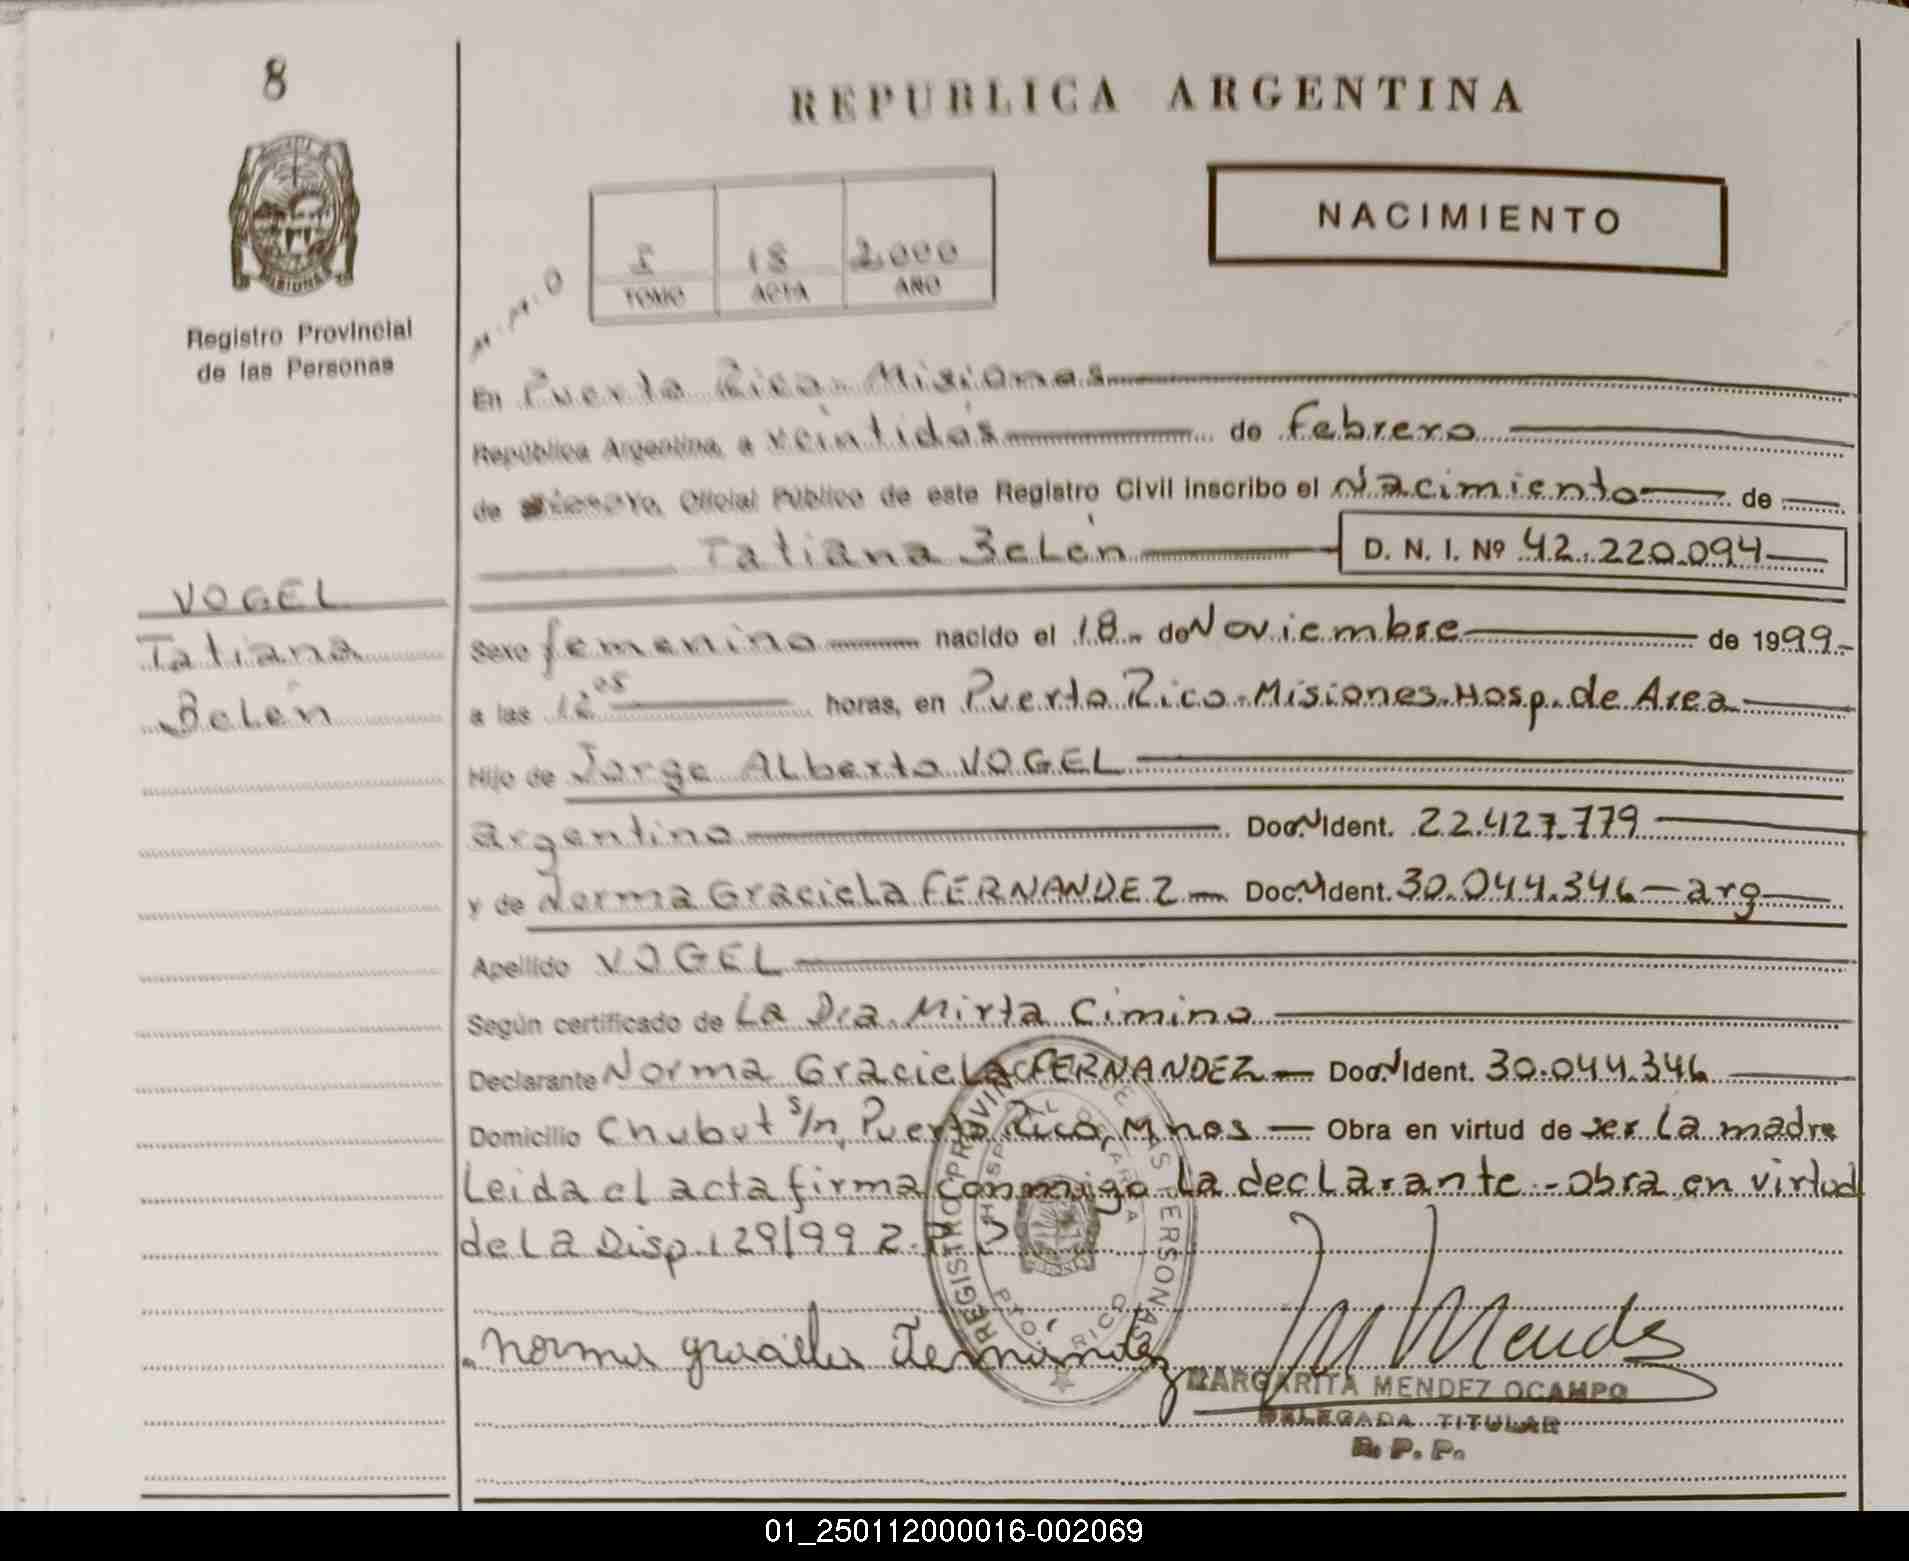 8
REPUBLICA ARGENTINA
NACIMIENTO
18 2000
TOMO ACTA AÑO
Registro Provincial
de las Personas
En Puerto Rico - Misiones
República Argentina, a veintidós de Febrero
de Oficial Público de este Registro Civil inscribo el Nacimiento de
Tatiana Belén D. N. I. Nº 42.220.094
VOGEL
Tatiana
Belén
Sexo femenino nacido el 18 de Noviembre de 1999
a las 12 05 horas, en Puerto Rico - Misiones. Hosp. de Area
Hijo de Jorge Alberto VOGEL
argentino Doc. Ident. 22.427.779
y de Norma Graciela FERNANDEZ - Doc. Ident. 30.044.346 - arg
Apellido VOGEL
Según certificado de La Dra. Mirta Cimino
Declarante Norma Graciela FERNANDEZ - Doc. Ident. 30.044.346
Domicilio Chubut s/n, Puerto Rico, Mnes - Obra en virtud de ser la madre
Leida el acta firma conmigo la declarante - Obra en virtud
de la Disp. 129/99
REGISTRO PROVINCIAL DE LAS PERSONAS
HOSPITAL DE AREA
PTO. RICO
Norma graciela Fernández
M Mendez
MARGARITA MENDEZ OCAMPO
DELEGADA TITULAR
R. P. P.
01_250112000016-002069